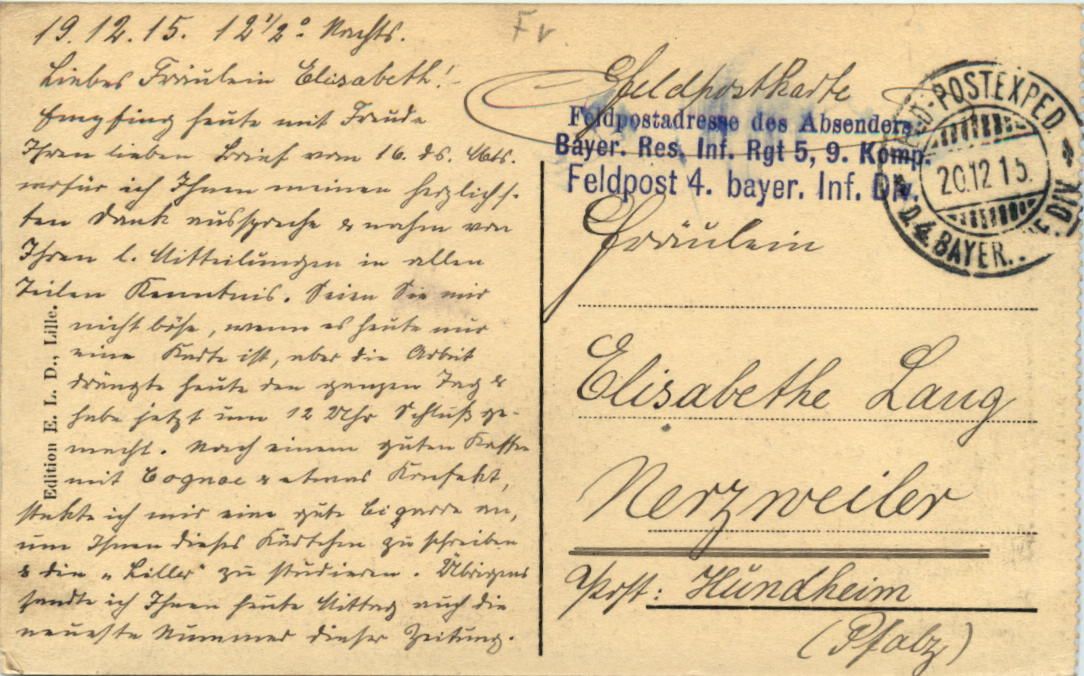 19.12.15. 12 1/2° Nachts.
Liebes Fräulein Elisabeth!
Empfing heute mit Freude
Ihren lieben Brief vom 16. ds. Mts.
wofür ich Ihnen meinen herzlichs-
ten Dank ausspreche & nahm von
Ihren l. Mitteilungen in allen
Teilen Kenntnis. Seien Sie mir
nicht böse, wenn es heute nur
eine Karte ist, aber die Arbeit
drängte heute den ganzen Tag &
habe jetzt um 12 Uhr Schluß ge-
macht. Nach einem guten Kaffee
mit Cognac & etwas Konfekt,
stekte ich mir eine gute Cigarre an,
um Ihnen dieses Kärtchen zu schreiben
& die „Liller" zu studieren. Übrigens
sandte ich Ihnen heute Mittag auch die
neueste Nummer dieser Zeitung.
Edition E. L. D., Lille.
Feldpostkarte
Feldpostadresse des Absenders
Bayer. Res. Inf. Rgt 5, 9. Komp.
Feldpost 4. bayer. Inf. Div.
POSTEXPED.
20.12.15.
D. 4. BAYER. DIV.
Fräulein
Elisabethe Lang
Nerzweiler
Post: Hundheim
(Pfalz)